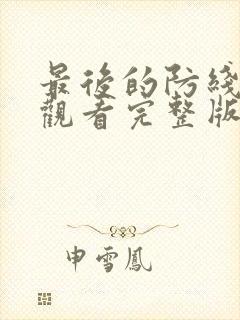 最後的防綫
觀看完整版
申雪鳳